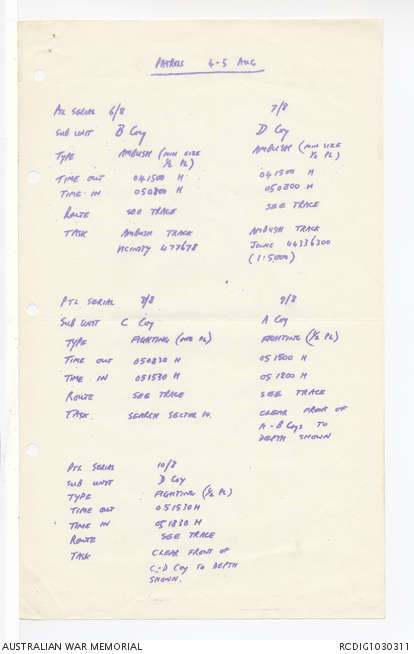 PATROLS 4-5 AUG
PTL SERIAL 6/8 7/8
SUB UNIT B Coy D Coy
TYPE AMBUSH (MIN SIZE ½ PL) AMBUSH (MIN SIZE ½ PL)
TIME OUT 041500 H 041500 H
TIME IN 050800 H 050800 H
ROUTE SEE TRACE SEE TRACE
TASK AMBUSH TRACK VICINITY 477678 AMBUSH TRACK JUNC 44336300 (1:5000)
PTL SERIAL 8/8 9/8
SUB UNIT C Coy A Coy
TYPE FIGHTING (ONE PL) FIGHTING (½ PL)
TIME OUT 050830 H 051500 H
TIME IN 051530 H 051800 H
ROUTE SEE TRACE SEE TRACE
TASK. SEARCH SECTOR 10. CLEAR FRONT OF A-B Coys TO DEPTH SHOWN
PTL SERIAL 10/8
SUB UNIT D Coy
TYPE FIGHTING (½ PL)
TIME OUT 051530H
TIME IN 051830 H
ROUTE SEE TRACE
TASK CLEAR FRONT OF
C-D Coy TO DEPTH
SHOWN.
AUSTRALIAN WAR MEMORIAL RCDIG1030311